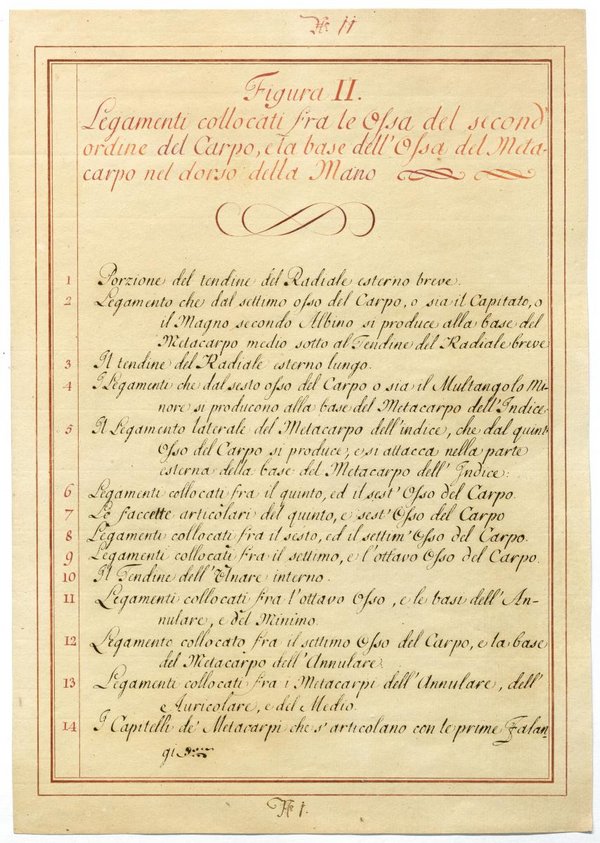 No. 11
Figura II.
Legamenti collocati fra le Ossa del second'
ordine del Carpo, e la base dell'Ossa del Meta-
carpo nel dorso della Mano
1 Porzione del tendine del Radiale esterno breve.
2 Legamento che dal settimo osso del Carpo, o sia il Capitato, o
il Magno secondo Albino si produce alla base del
Metacarpo medio sotto al Tendine del Radiale breve
3 Il tendine del Radiale esterno lungo.
4 I Legamenti che dal sesto osso del Carpo o sia il Multangolo Mi-
nore si producono alla base del Metacarpo dell'Indice
5 Il Legamento laterale del Metacarpo dell'indice, che dal quint'
Osso del Carpo si produce, e si attacca nella parte
esterna della base del Metacarpo dell' Indice.
6 Legamenti collocati fra il quinto, ed il sest' Osso del Carpo.
7 Le faccette articolari del quinto, e sest' Osso del Carpo
8 Legamenti collocati fra il sesto, ed il settim' Osso del Carpo.
9 Legamenti collocati fra il settimo, e l'ottavo Osso del Carpo.
10 Il Tendine dell' Ulnare interno.
11 Legamenti collocati fra l'ottavo Osso, e le basi dell' An-
nulare, e del Minimo.
12 Legamento collocato fra il settimo Osso del Carpo, e la base
del Metacarpo dell' Annulare.
13 Legamenti collocati fra i Metacarpi dell' Annulare, dell'
Auricolare, e del Medio.
14 I Capitelli de' Metacarpi che s' articolano con le prime Falan-
gi
No. 1.